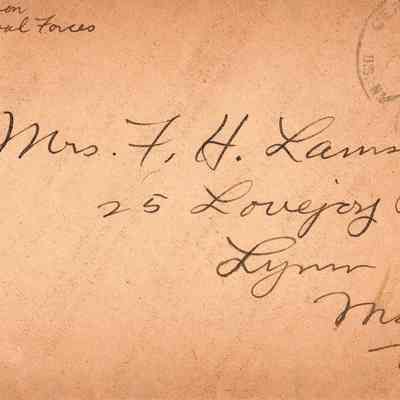 on
al Forces
U.S.
Mrs. F. H. Lams
25 Lovejoy
Lynn
Ma